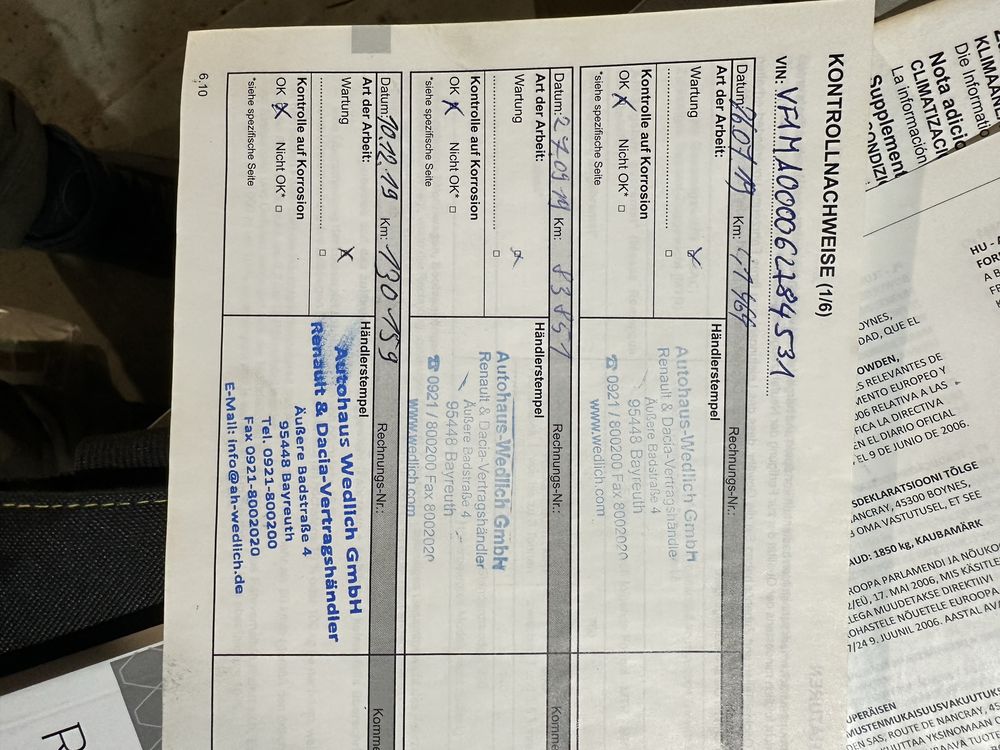 KONTROLLNACHWEISE (1/6)
VIN: VF1MA000062784531
Datum: Km: Rechnungs-Nr.:
Art der Arbeit: Händlerstempel
Wartung
Kontrolle auf Korrosion
OK X Nicht OK* □
*siehe spezifische Seite
Autohaus-Wedlich GmbH
Renault & Dacia-Vertragshändler
Äußere Badstraße 4
95448 Bayreuth
☎ 0921 / 800200 Fax 8002020
www.wedlich.com
Datum: 27.09.19 Km: 83851 Rechnungs-Nr.:
Art der Arbeit: Händlerstempel
Wartung
Kontrolle auf Korrosion
OK X Nicht OK* □
*siehe spezifische Seite
Autohaus-Wedlich GmbH
Renault & Dacia-Vertragshändler
Äußere Badstraße 4
95448 Bayreuth
☎ 0921 / 800200 Fax 8002020
www.wedlich.com
Datum: 10.12.19 Km: 130 159 Rechnungs-Nr.: Komme
Art der Arbeit: Händlerstempel
Wartung X
Kontrolle auf Korrosion
OK X Nicht OK* □
*siehe spezifische Seite
Autohaus Wedlich GmbH
Renault & Dacia-Vertragshändler
Äußere Badstraße 4
95448 Bayreuth
Tel. 0921-800200
Fax 0921-8002020
E-Mail: info@ah-wedlich.de
6.10
KLIMAAN
Die Informatio
Nota adicio
CLIMATIZACI
La información
Supplement
HU -
FOR
A B
OYNES,
DAD, QUE EL
OWDEN,
ES RELEVANTES DE
MENTO EUROPEO Y
006 RELATIVA A LAS
FICA LA DIRECTIVA
EN EL DIARIO OFICIAL
EL 9 DE JUNIO DE 2006.
SDEKLARATSIOONI TÕLGE
ANCRAY, 45300 BOYNES,
OMA VASTUTUSEL, ET SEE
AUD: 1850 kg, KAUBAMÄRK
ROOPA PARLAMENDI JA NÕUKO
2/EÜ, 17. MAI 2006, MIS KÄSITLE
LEGA MUUDETAKSE DIREKTIIVI
OHASTELE NÕUETELE EUROOPA
7/24 9. JUUNIL 2006. AASTAL AV
UPERÄISEN
MUSTENMUKAISUUSVAKUUTUKS
EN SAS, ROUTE DE NANCRAY, 45
R